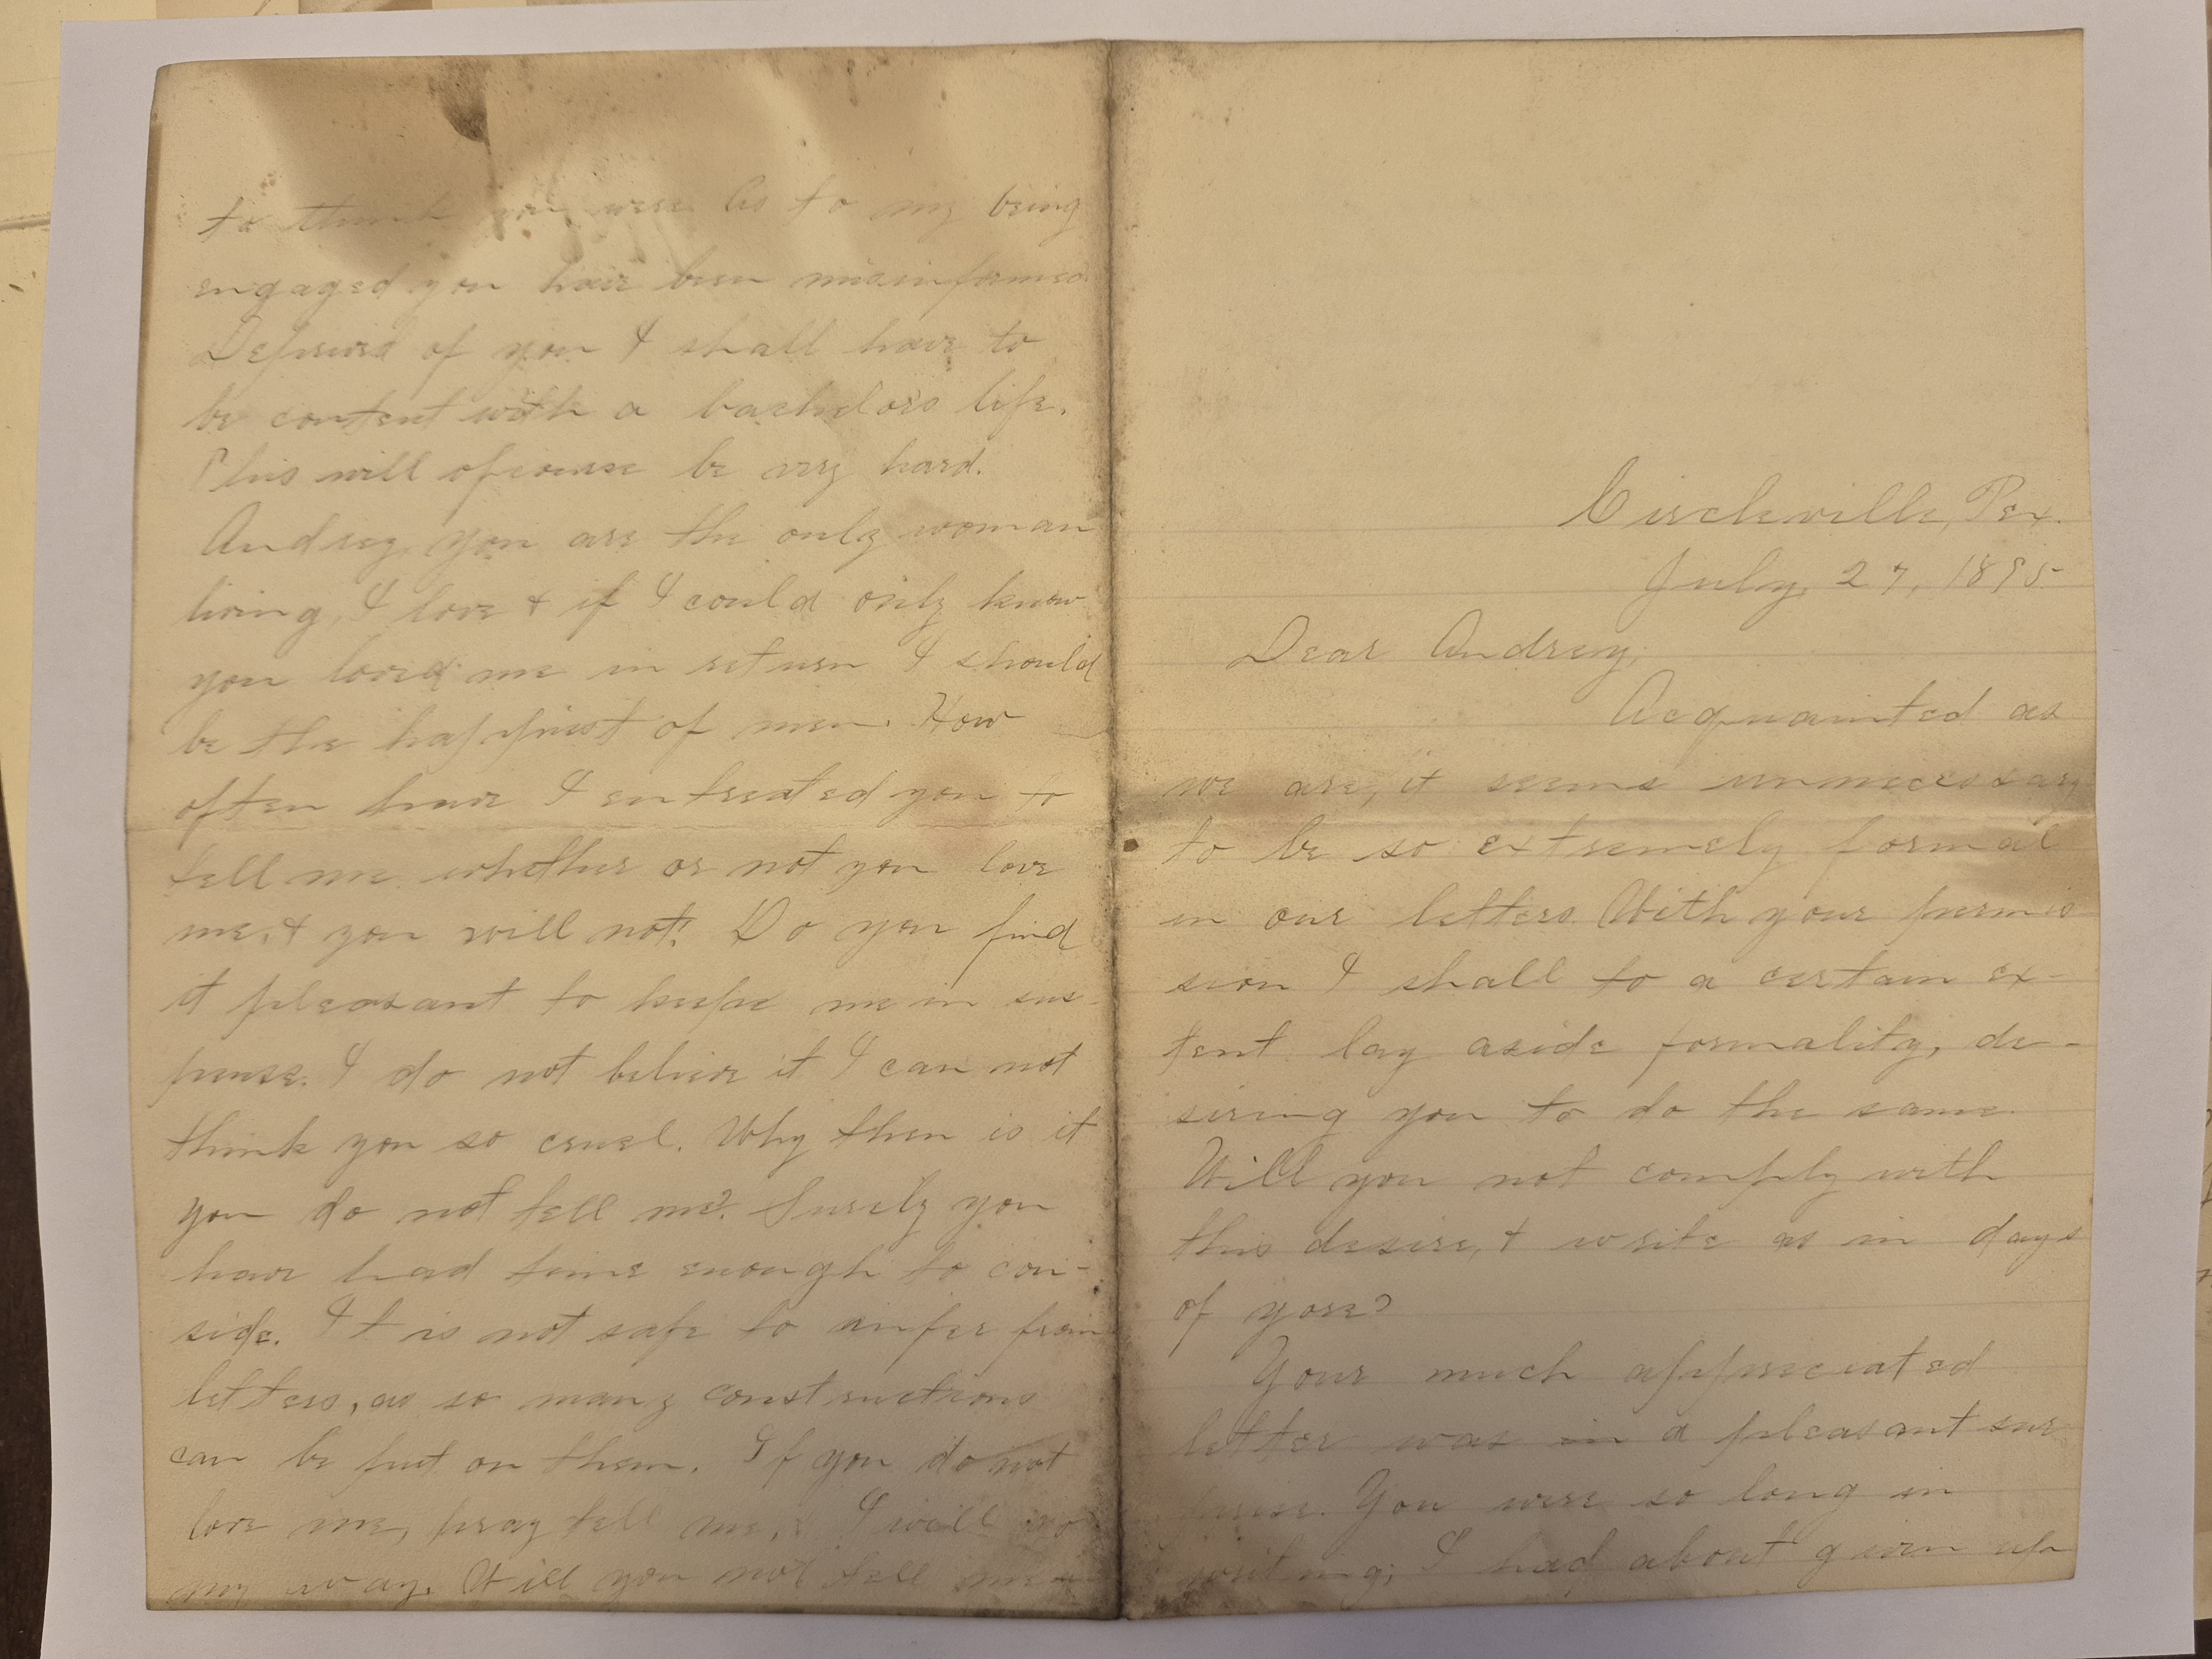 Circleville, Tex.
July, 27, 1895
Dear Audrey;
Acquainted as
we are, it seems unnecessary
to be so extremely formal
in our letters. With your permis
sion I shall to a certain ex-
tent lay aside formality, de-
siring you to do the same.
Will you not comply with
this desire, & write as in days
of yore?
Your much appreciated
letter was in a pleasant sur
prise. You were so long in
writing; I had about given up
to think you were. As to my being
engaged you have been misinformed.
Deprived of you I shall have to
be content with a bachelors life.
This will ofcourse be very hard.
Audrey, you are the only woman
living, I love & if I could only know
you loved me in return I should
be the happiest of men. How
often have I entreated you to
tell me whether or not you love
me, & you will not! Do you find
it pleasant to keepe me in sus-
pense. I do not believe it I can not
think you so cruel. Why then is it
you do not tell me? Surely you
have had time enough to con-
side. It is not safe to infer from
letters, as so many constructions
can be put on them. If you do not
love me, pray tell me, & I will go
my way. Will you not tell me